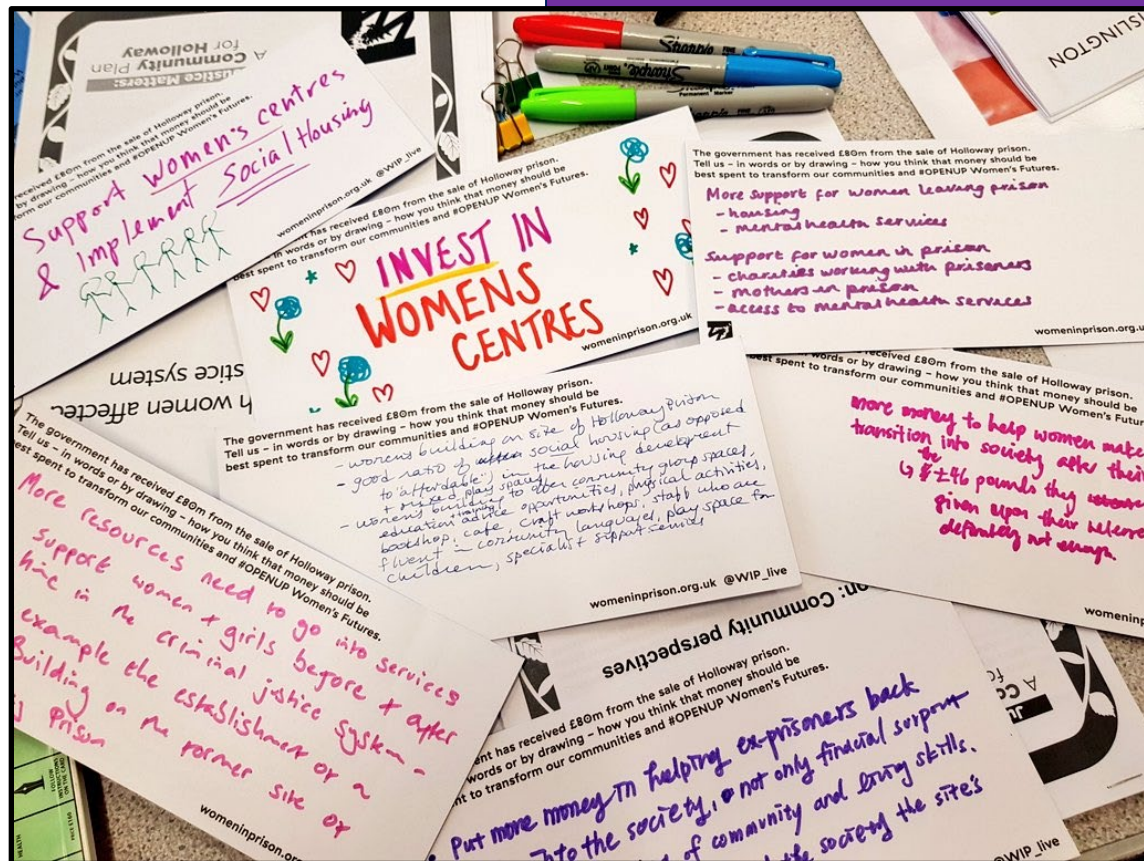 A Community Plan
for Holloway
Justice Matters:
received £80m from the sale of Holloway prison.
Tell us – in words or by drawing – how you think that money should be
form our communities and #OPENUP Women's Futures.
Support women's centres
& Implement Social Housing
womeninprison.org.uk @WIP_live
has received £80m from the sale of Holloway prison.
in words or by drawing – how you think that money should be
best spent to transform our communities and #OPENUP Women's Futures.
INVEST IN
WOMENS
CENTRES
womeninprison.org.uk
Sharpie
Sharpie
Permanent Marker
ISLINGTON
The government has received £80m from the sale of Holloway prison.
Tell us – in words or by drawing – how you think that money should be
best spent to transform our communities and #OPENUP Women's Futures.
More support for women leaving prison
- housing
- mental health services
Support for women in prison
- charities working with prisoners
- mothers in prison
- access to mental health services
womeninprison.org.u
h women affected
stice system
The government has received £80m from the sale of Holloway prison.
Tell us – in words or by drawing – how you think that money should be
best spent to transform our communities and #OPENUP Women's Futures.
- women's building on site of Holloway Prison
- good ratio of social housing (as opposed
to 'affordable') in the housing development
+ mixed play space
- women's building to offer community group spaces,
education + training advice opportunities, physical activities,
bookshop, cafe, craft workshops, staff who are
fluent in community languages, play space for
children, specialist support services
womeninprison.org.uk @WIP_live
received £80m from the sale of Holloway prison.
words or by drawing – how you think that money should be
est spent to transform our communities and #OPENUP Women's Futur
more money to help women make
transition into society after their
↳ the £46 pounds they
given upon their release
definitely not enough.
womeninp
The government has received £80m from the sale of Holloway prison.
Tell us – in words or by drawing – how you think that money should be
best spent to transform our communities and #OPENUP Women's Futures.
More resources need to go into services
support women + girls before + after
time in the criminal justice system –
example the establishment of a
Building on the former site of
prison
womeninprison.or
on: Community perspectives
ent has received £80m from the sale of Holloway prison.
words or by drawing – how you think that money should be
nt to transform our communities and #OPENUP Women's Futures.
• Put more money in helping ex-prisoners back
into the society, not only financial support
of community and living skills.
the society the site's
@WIP_live
A
Co
fo
FOLLOW
INSTRUCTIONS
ON THE CARD
PRICE £160
HEALTH